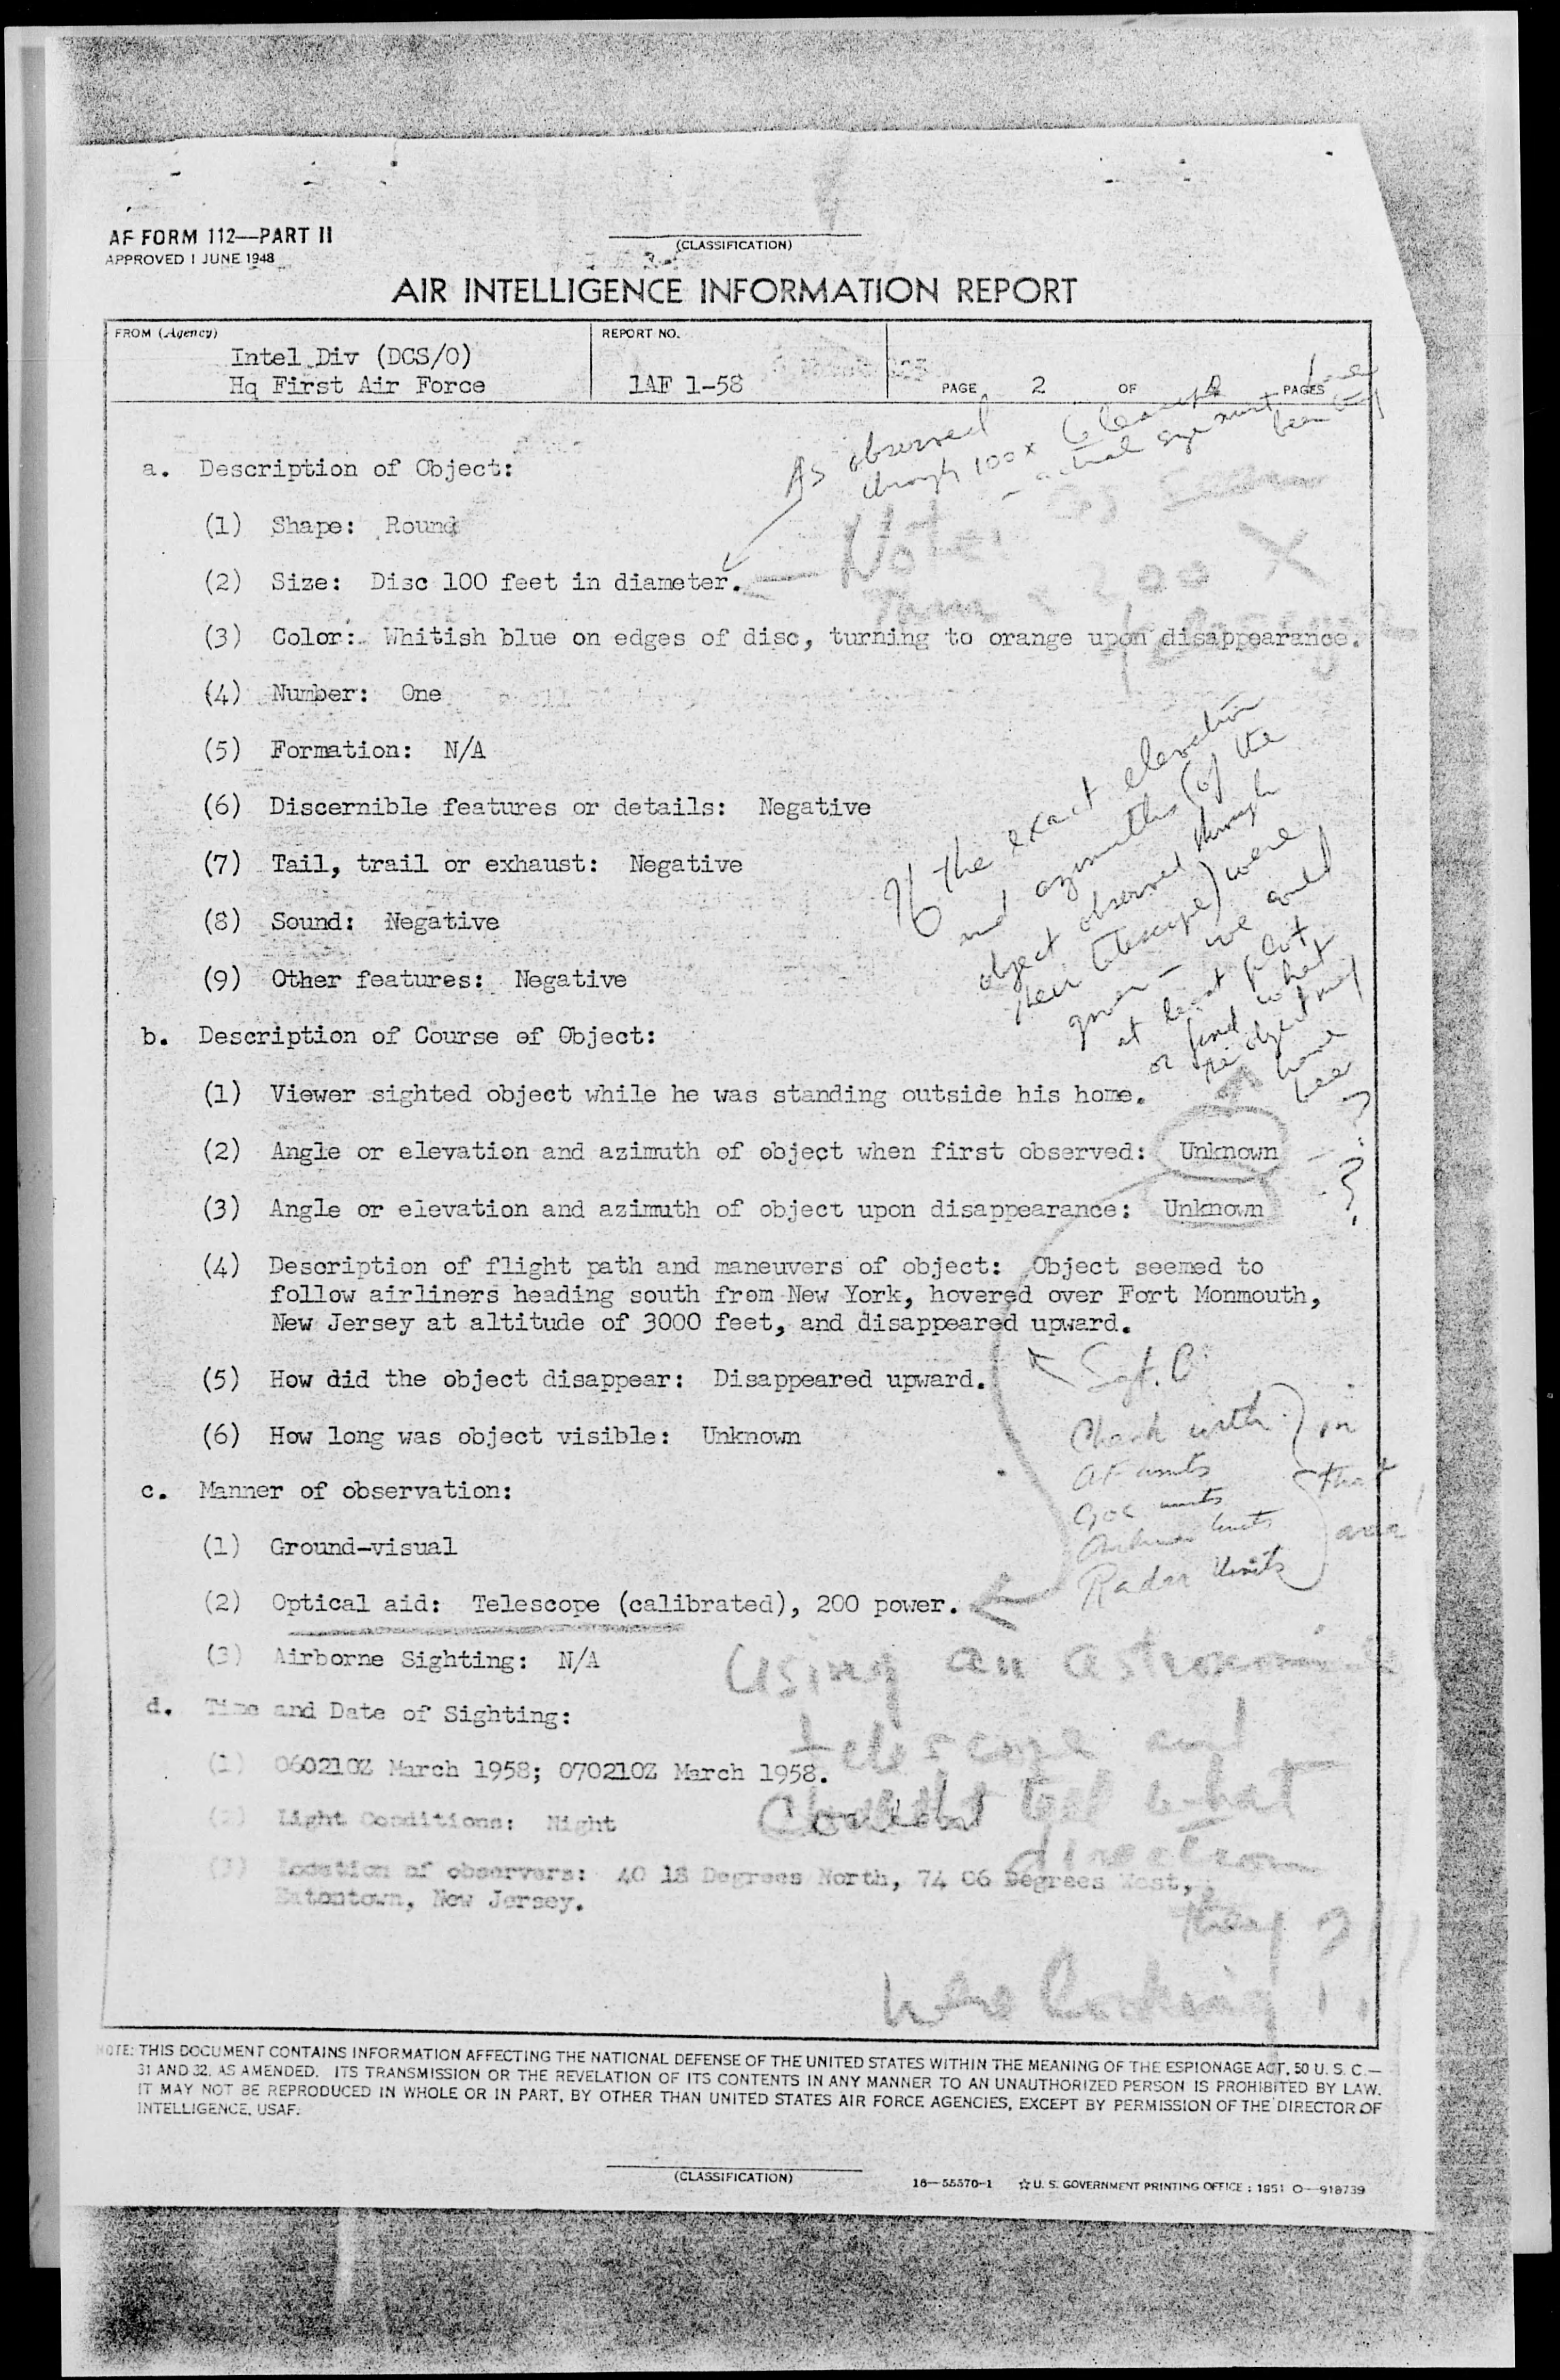 AF FORM 112—PART II
APPROVED 1 JUNE 1948
(CLASSIFICATION)
AIR INTELLIGENCE INFORMATION REPORT
FROM (Agency)
Intel Div (DCS/O)
Hq First Air Force
REPORT NO.
1AF 1-58
PAGE 2 OF PAGES
As observed
through 100x telescope
- actual size must
been
a. Description of Object:
(1) Shape: Round
Note: as seen
(2) Size: Disc 100 feet in diameter.
200 X
telescope
(3) Color: Whitish blue on edges of disc, turning to orange upon disappearance.
(4) Number: One
(5) Formation: N/A
(6) Discernible features or details: Negative
(7) Tail, trail or exhaust: Negative
(8) Sound: Negative
(9) Other features: Negative
If the exact elevation
and azimuths (of the
object observed through
their telescope) were
given - we could
at least plot
or find what
the object may
have
been
b. Description of Course of Object:
(1) Viewer sighted object while he was standing outside his home.
(2) Angle or elevation and azimuth of object when first observed: Unknown
(3) Angle or elevation and azimuth of object upon disappearance: Unknown
?
(4) Description of flight path and maneuvers of object: Object seemed to
follow airliners heading south from New York, hovered over Fort Monmouth,
New Jersey at altitude of 3000 feet, and disappeared upward.
(5) How did the object disappear: Disappeared upward.
(6) How long was object visible: Unknown
Sgt. C
Check with
AF units
GOC units
Radar Units
in
that
area!
c. Manner of observation:
(1) Ground-visual
(2) Optical aid: Telescope (calibrated), 200 power.
(3) Airborne Sighting: N/A
d. Time and Date of Sighting:
(1) 060210Z March 1958; 070210Z March 1958.
(2) Light Conditions: Night
(3) Location of observers: 40 18 Degrees North, 74 06 Degrees West,
Eatontown, New Jersey.
Using an astronomical
telescope and
couldn't tell what
direction
they
were looking !!
NOTE: THIS DOCUMENT CONTAINS INFORMATION AFFECTING THE NATIONAL DEFENSE OF THE UNITED STATES WITHIN THE MEANING OF THE ESPIONAGE ACT, 50 U. S. C.—
31 AND 32, AS AMENDED. ITS TRANSMISSION OR THE REVELATION OF ITS CONTENTS IN ANY MANNER TO AN UNAUTHORIZED PERSON IS PROHIBITED BY LAW.
IT MAY NOT BE REPRODUCED IN WHOLE OR IN PART, BY OTHER THAN UNITED STATES AIR FORCE AGENCIES, EXCEPT BY PERMISSION OF THE DIRECTOR OF
INTELLIGENCE, USAF.
(CLASSIFICATION)
16—55570-1 ☆ U. S. GOVERNMENT PRINTING OFFICE : 1951 O—918739